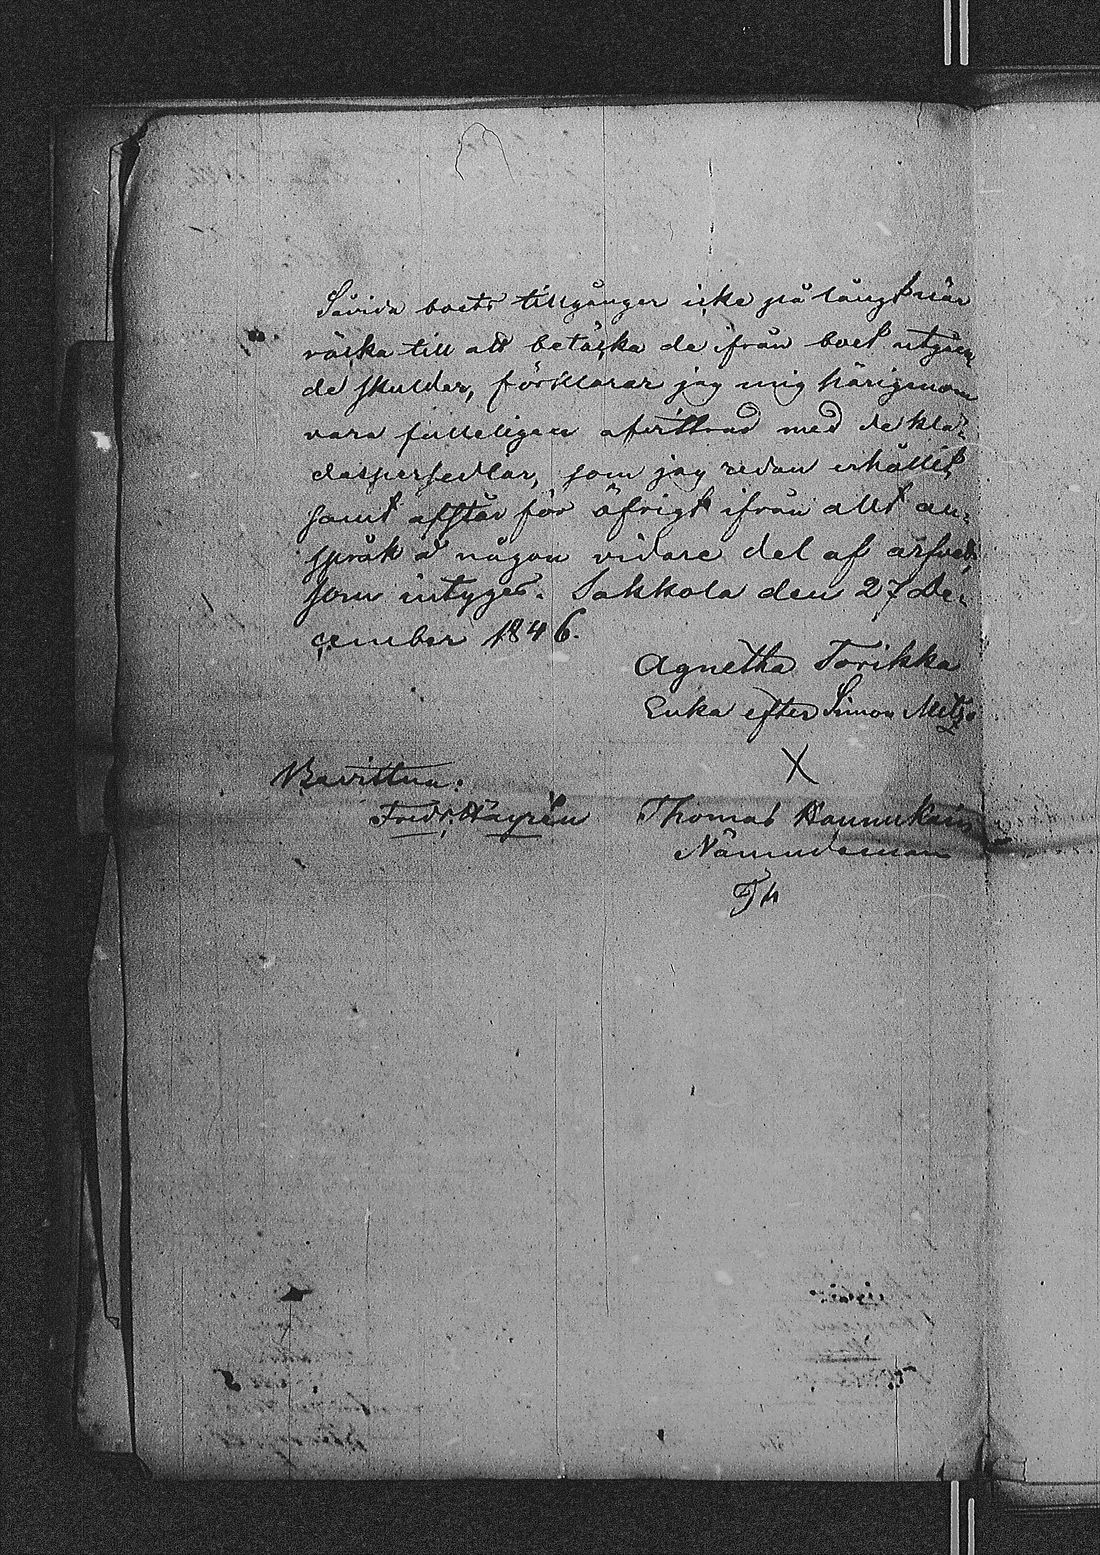 Såvida boets tillgångar icke på långt när
räcka till att betäcka de ifrån boet utgåen
de skulder, förklarar jag mig härigenom
vara fulleligen afvittrad med de klä-
despersedlar, som jag redan erhållit
samt afstår för öfrigt ifrån allt an-
språk å någon vidare del af arfvet,
som intygas. Sakkola den 27 De-
cember 1846.
Agnetha Torikka
Enka efter Simon
X
Bevittna:
Fredr. Häyrén Thomas
Nämndeman
TH